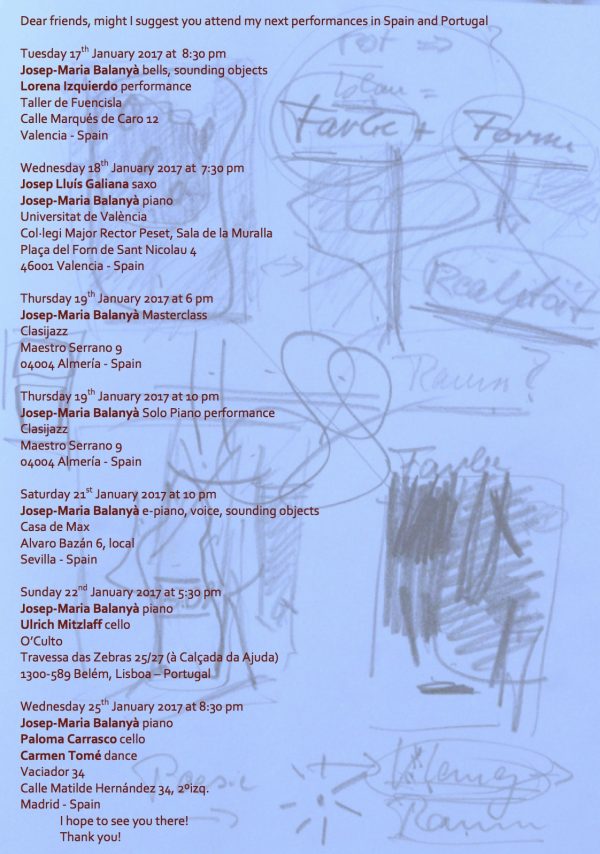 Dear friends, might I suggest you attend my next performances in Spain and Portugal
Tuesday 17th January 2017 at 8:30 pm
Josep-Maria Balanyà bells, sounding objects
Lorena Izquierdo performance
Taller de Fuencisla
Calle Marqués de Caro 12
Valencia - Spain
Wednesday 18th January 2017 at 7:30 pm
Josep Lluís Galiana saxo
Josep-Maria Balanyà piano
Universitat de València
Col·legi Major Rector Peset, Sala de la Muralla
Plaça del Forn de Sant Nicolau 4
46001 Valencia - Spain
Thursday 19th January 2017 at 6 pm
Josep-Maria Balanyà Masterclass
Clasijazz
Maestro Serrano 9
04004 Almería - Spain
Thursday 19th January 2017 at 10 pm
Josep-Maria Balanyà Solo Piano performance
Clasijazz
Maestro Serrano 9
04004 Almería - Spain
Saturday 21st January 2017 at 10 pm
Josep-Maria Balanyà e-piano, voice, sounding objects
Casa de Max
Alvaro Bazán 6, local
Sevilla - Spain
Sunday 22nd January 2017 at 5:30 pm
Josep-Maria Balanyà piano
Ulrich Mitzlaff cello
O'Culto
Travessa das Zebras 25/27 (à Calçada da Ajuda)
1300-589 Belém, Lisboa – Portugal
Wednesday 25th January 2017 at 8:30 pm
Josep-Maria Balanyà piano
Paloma Carrasco cello
Carmen Tomé dance
Vaciador 34
Calle Matilde Hernández 34, 2ºizq.
Madrid - Spain
I hope to see you there!
Thank you!
Rot => ?
blau =
Farbe + Form
Raum ?
Farbe
Poesie
Raum